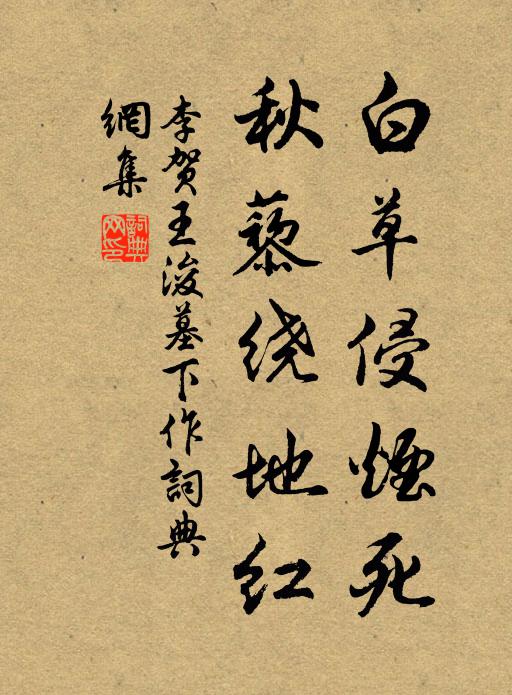 白草侵煙死
秋藜绕地红
李贺王浚墓下作詞典
網集
詞典网印